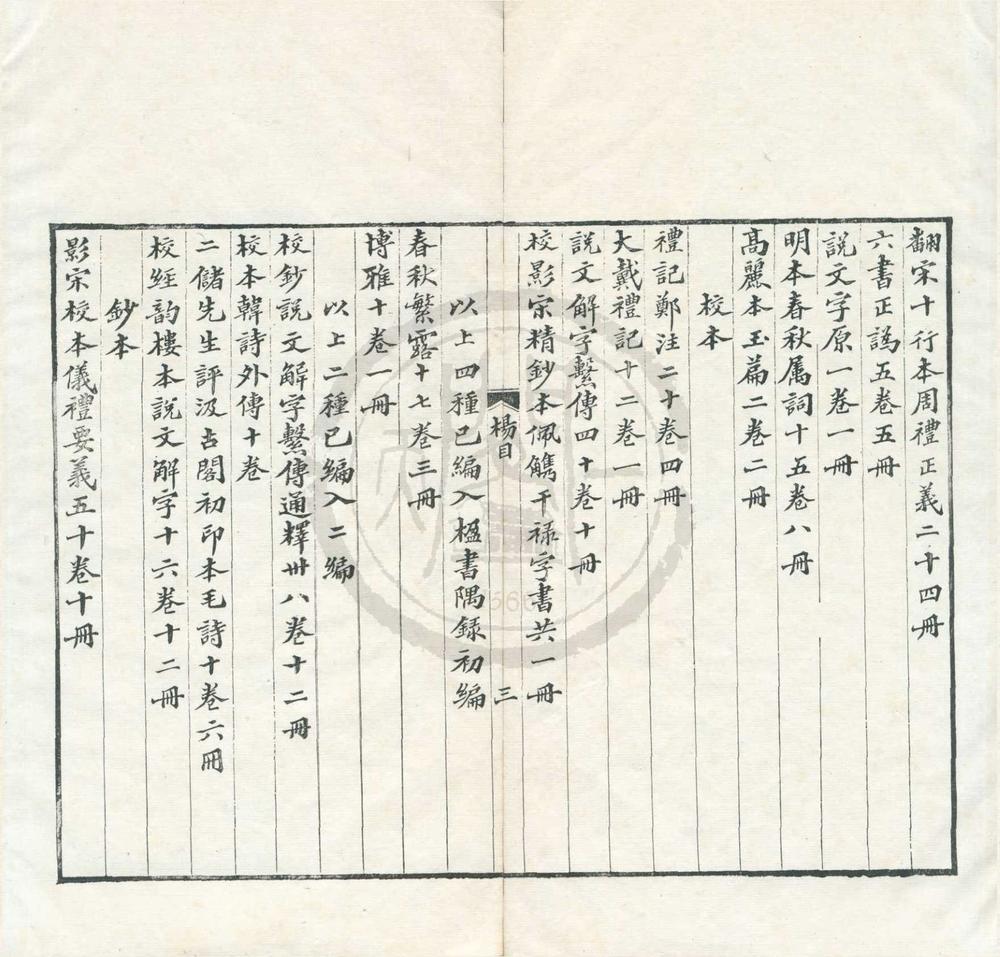 翻宋十行本周禮正義二十四冊
六書正譌五卷五冊
說文字原一卷一冊
明本春秋属詞十五卷八冊
高麗本玉篇二卷二冊
校本
禮記鄭注二十卷四冊
大戴禮記十二卷一冊
說文解字繫傳四十卷十冊
校影宗精鈔本佩觿干禄字書共一冊
以上四種已編入楹書隅録初編
楊目
三
春秋繁露十七卷三冊
博雅十卷一冊
以上二種已編入二編
校鈔說文解字繫傳通釋卅八卷十二冊
校本韓詩外傳十卷
二儲先生評汲古閣初印本毛詩十卷六冊
校經韵樓本說文解字十六卷十二冊
鈔本
影宋校本儀禮要義五十卷十冊